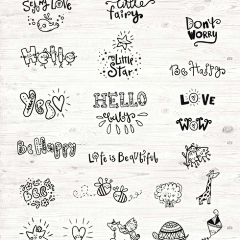 Little
Fairy
Don't
WORRY
Hello
Little
Star
Be Happy
Yes
HELLO
baby
LOVE
WOW
Be Happy
Life is Beautiful